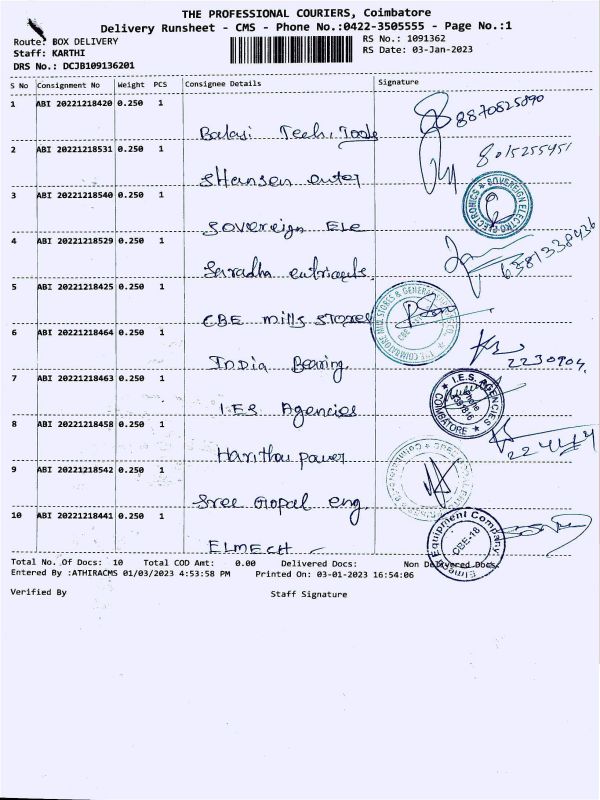 THE PROFESSIONAL COURIERS, Coimbatore
Delivery Runsheet - CMS - Phone No.:0422-3505555 - Page No.:1
Route: BOX DELIVERY
RS No.: 1091362
Staff: KARTHI
RS Date: 03-Jan-2023
DRS No.: DCJB109136201
S No Consignment No Weight PCS Consignee Details Signature
1 ABI 20221218420 0.250 1
Balaji Tech. Tools 8870825890
2 ABI 20221218531 0.250 1
SHansen enter 8015255451
3 ABI 20221218540 0.250 1
Sovereign Ele
SOVEREIGN ELECTRO ELECTRONICS
4 ABI 20221218529 0.250 1
Saradha 6381338436
5 ABI 20221218425 0.250 1
CBE mills stores
THE COIMBATORE MILL STORES & GENERAL CO.
6 ABI 20221218464 0.250 1
India Bearing 2230904
7 ABI 20221218463 0.250 1
I.E.S Agencies
I.E.S. AGENCIES
COIMBATORE
8 ABI 20221218458 0.250 1
power
9 ABI 20221218542 0.250 1
Sree Gopal eng.
10 ABI 20221218441 0.250 1
ELMECH
Elmech Equipment Company
CBE-18
Total No. Of Docs: 10 Total COD Amt: 0.00 Delivered Docs: Non Delivered Docs:
Entered By :ATHIRACMS 01/03/2023 4:53:58 PM Printed On: 03-01-2023 16:54:06
Verified By Staff Signature